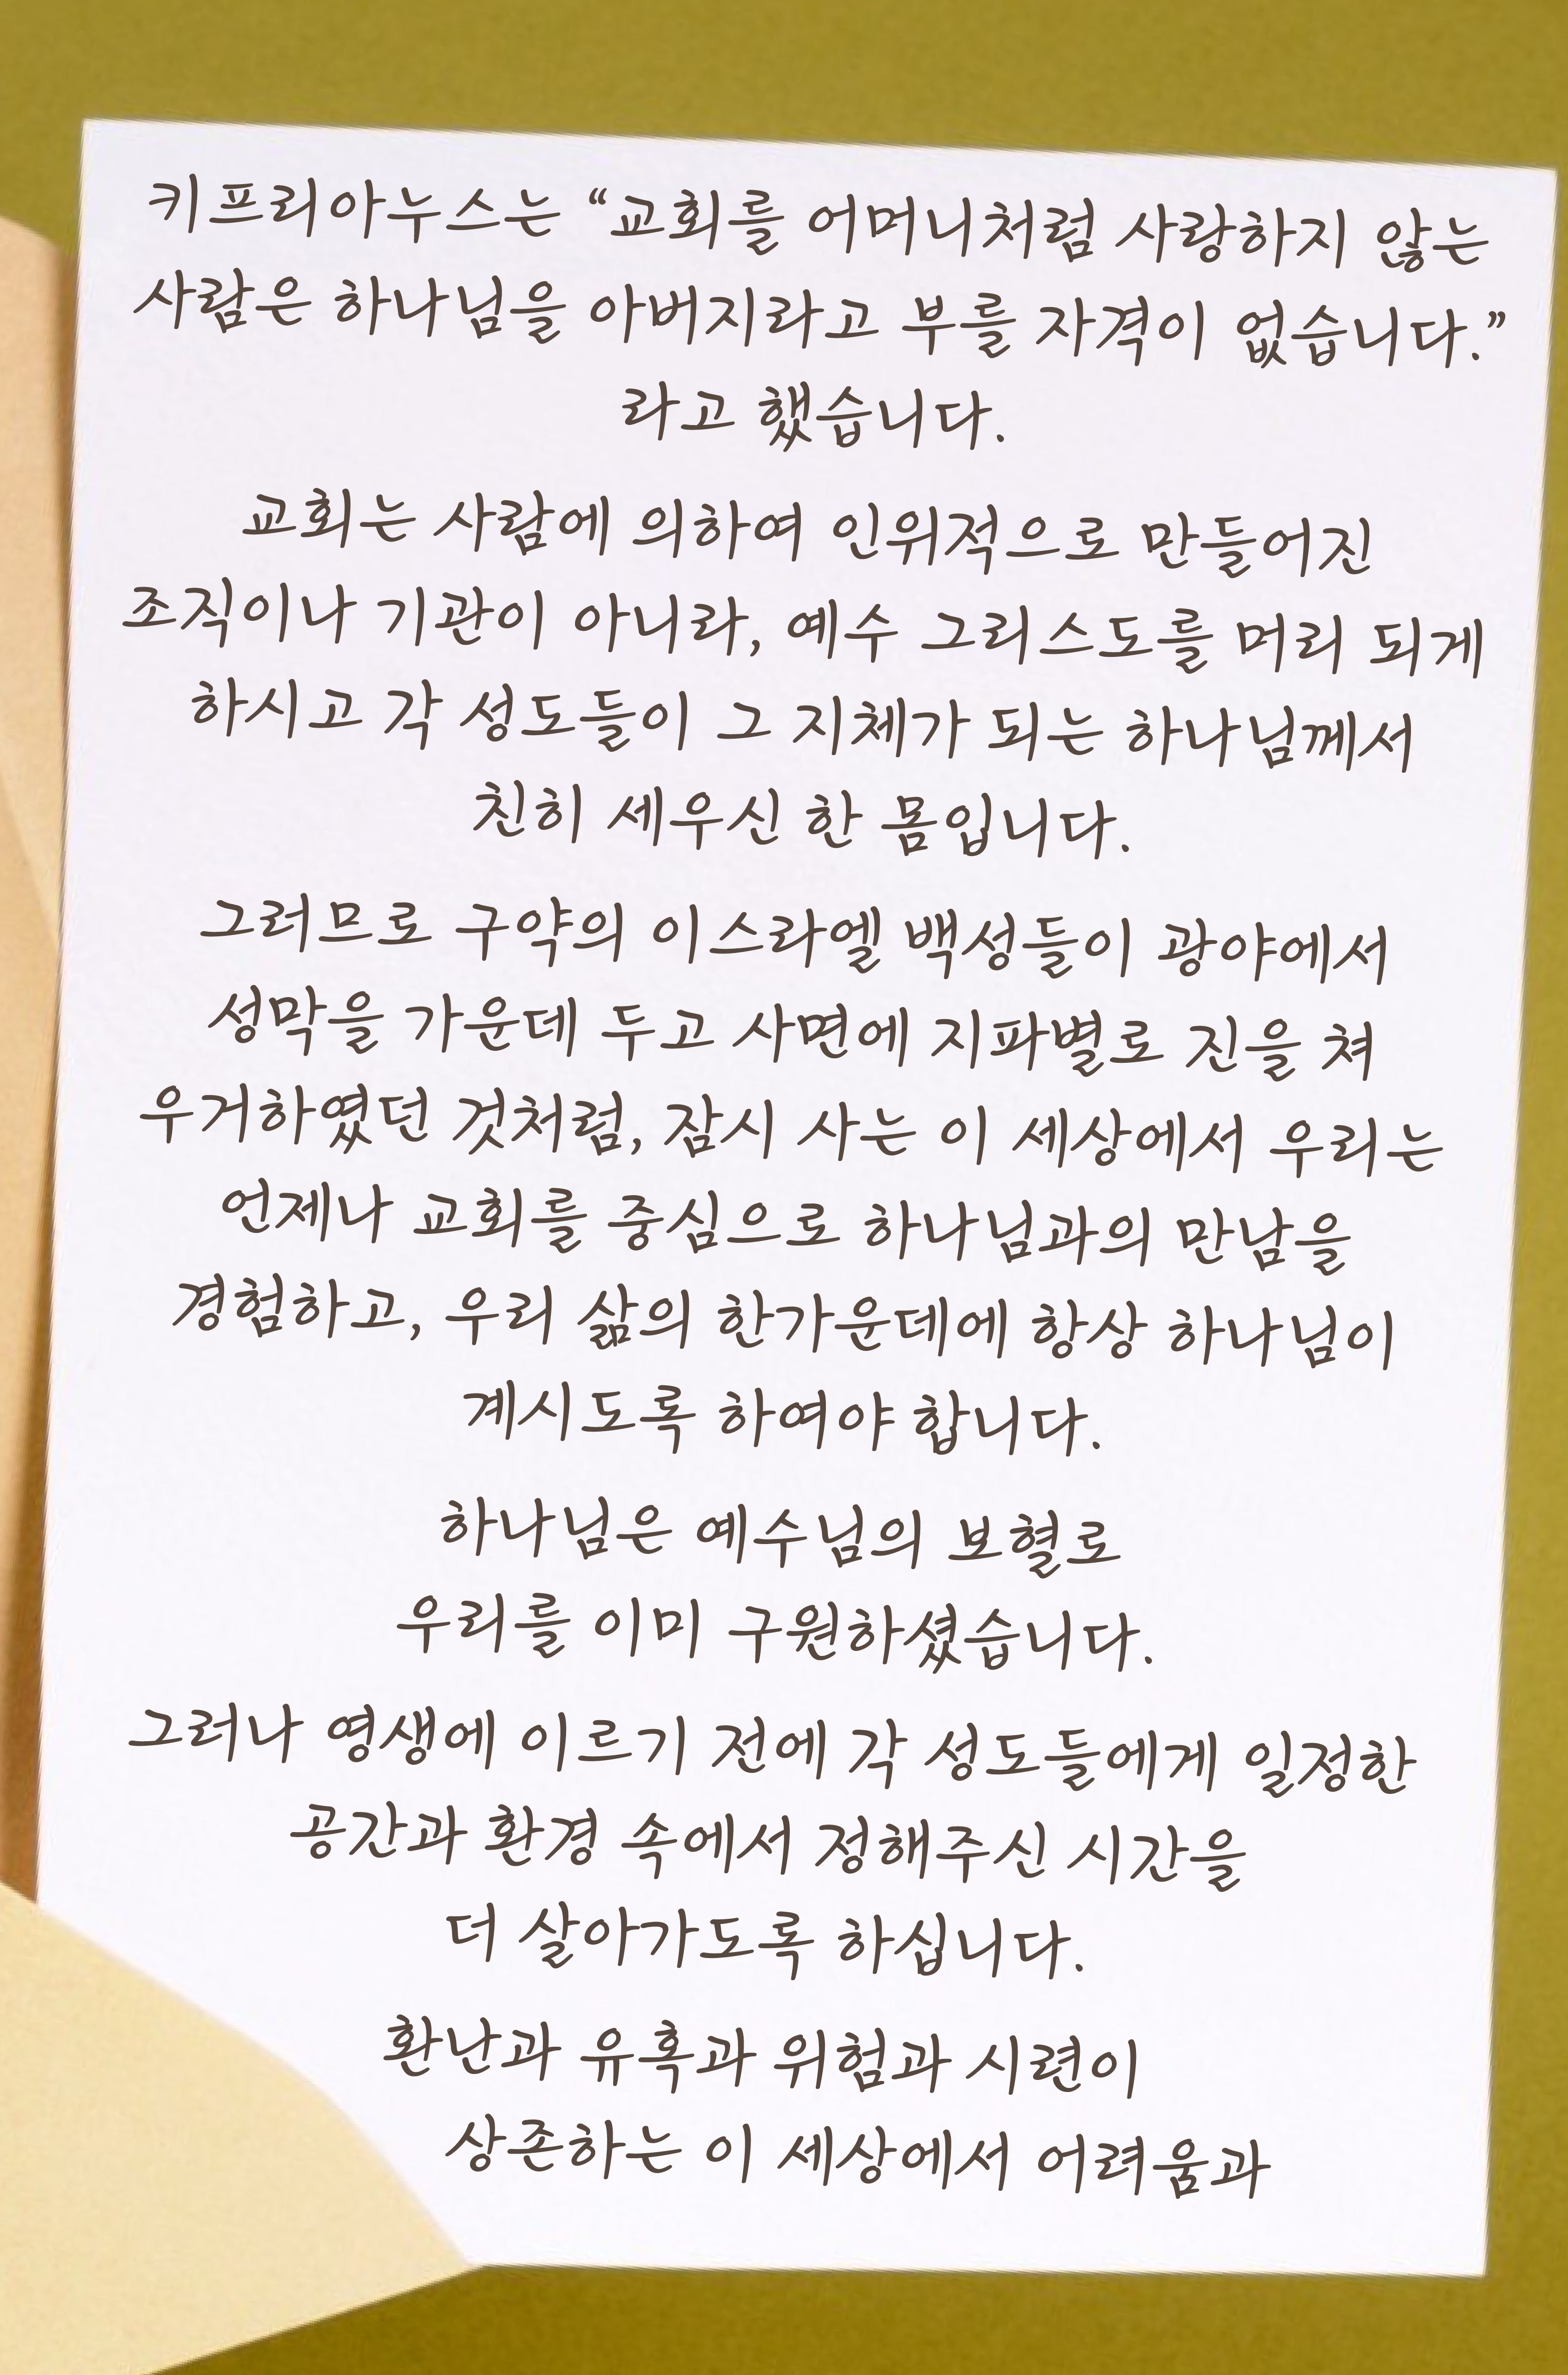 키프리아누스는 “교회를 어머니처럼 사랑하지 않는
사람은 하나님을 아버지라고 부를 자격이 없습니다.”
라고 했습니다.
교회는 사람에 의하여 인위적으로 만들어진
조직이나 기관이 아니라, 예수 그리스도를 머리 되게
하시고 각 성도들이 그 지체가 되는 하나님께서
친히 세우신 한 몸입니다.
그러므로 구약의 이스라엘 백성들이 광야에서
성막을 가운데 두고 사면에 지파별로 진을 쳐
우거하였던 것처럼, 잠시 사는 이 세상에서 우리는
언제나 교회를 중심으로 하나님과의 만남을
경험하고, 우리 삶의 한가운데에 항상 하나님이
계시도록 하여야 합니다.
하나님은 예수님의 보혈로
우리를 이미 구원하셨습니다.
그러나 영생에 이르기 전에 각 성도들에게 일정한
공간과 환경 속에서 정해주신 시간을
더 살아가도록 하십니다.
환난과 유혹과 위험과 시련이
상존하는 이 세상에서 어려움과